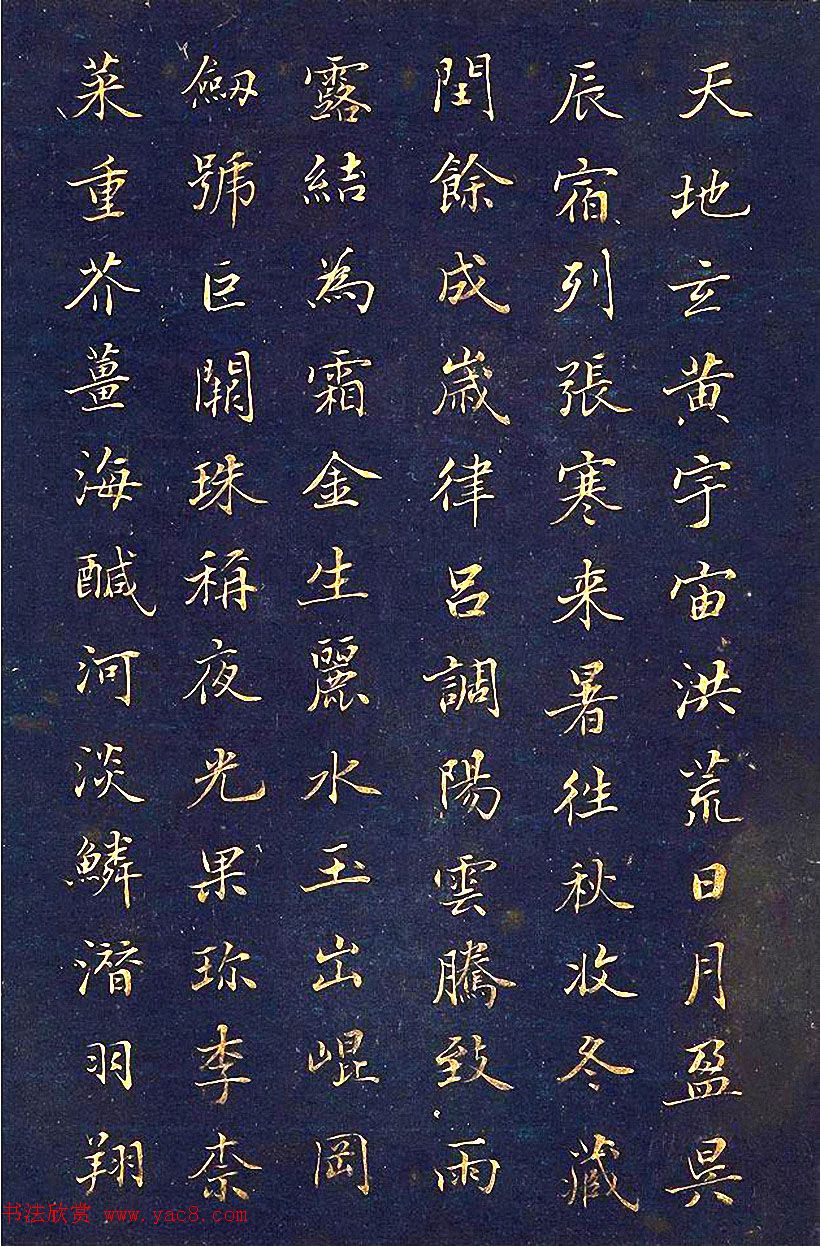 天地玄黄宇宙洪荒日月盈昃
辰宿列張寒来暑往秋收冬藏
閏餘成歲律呂調陽雲騰致雨
露結為霜金生麗水玉出崐岡
劔號巨闕珠稱夜光果珎李柰
菜重芥薑海醎河淡鱗潛羽翔
书法欣赏 www.yac8.com